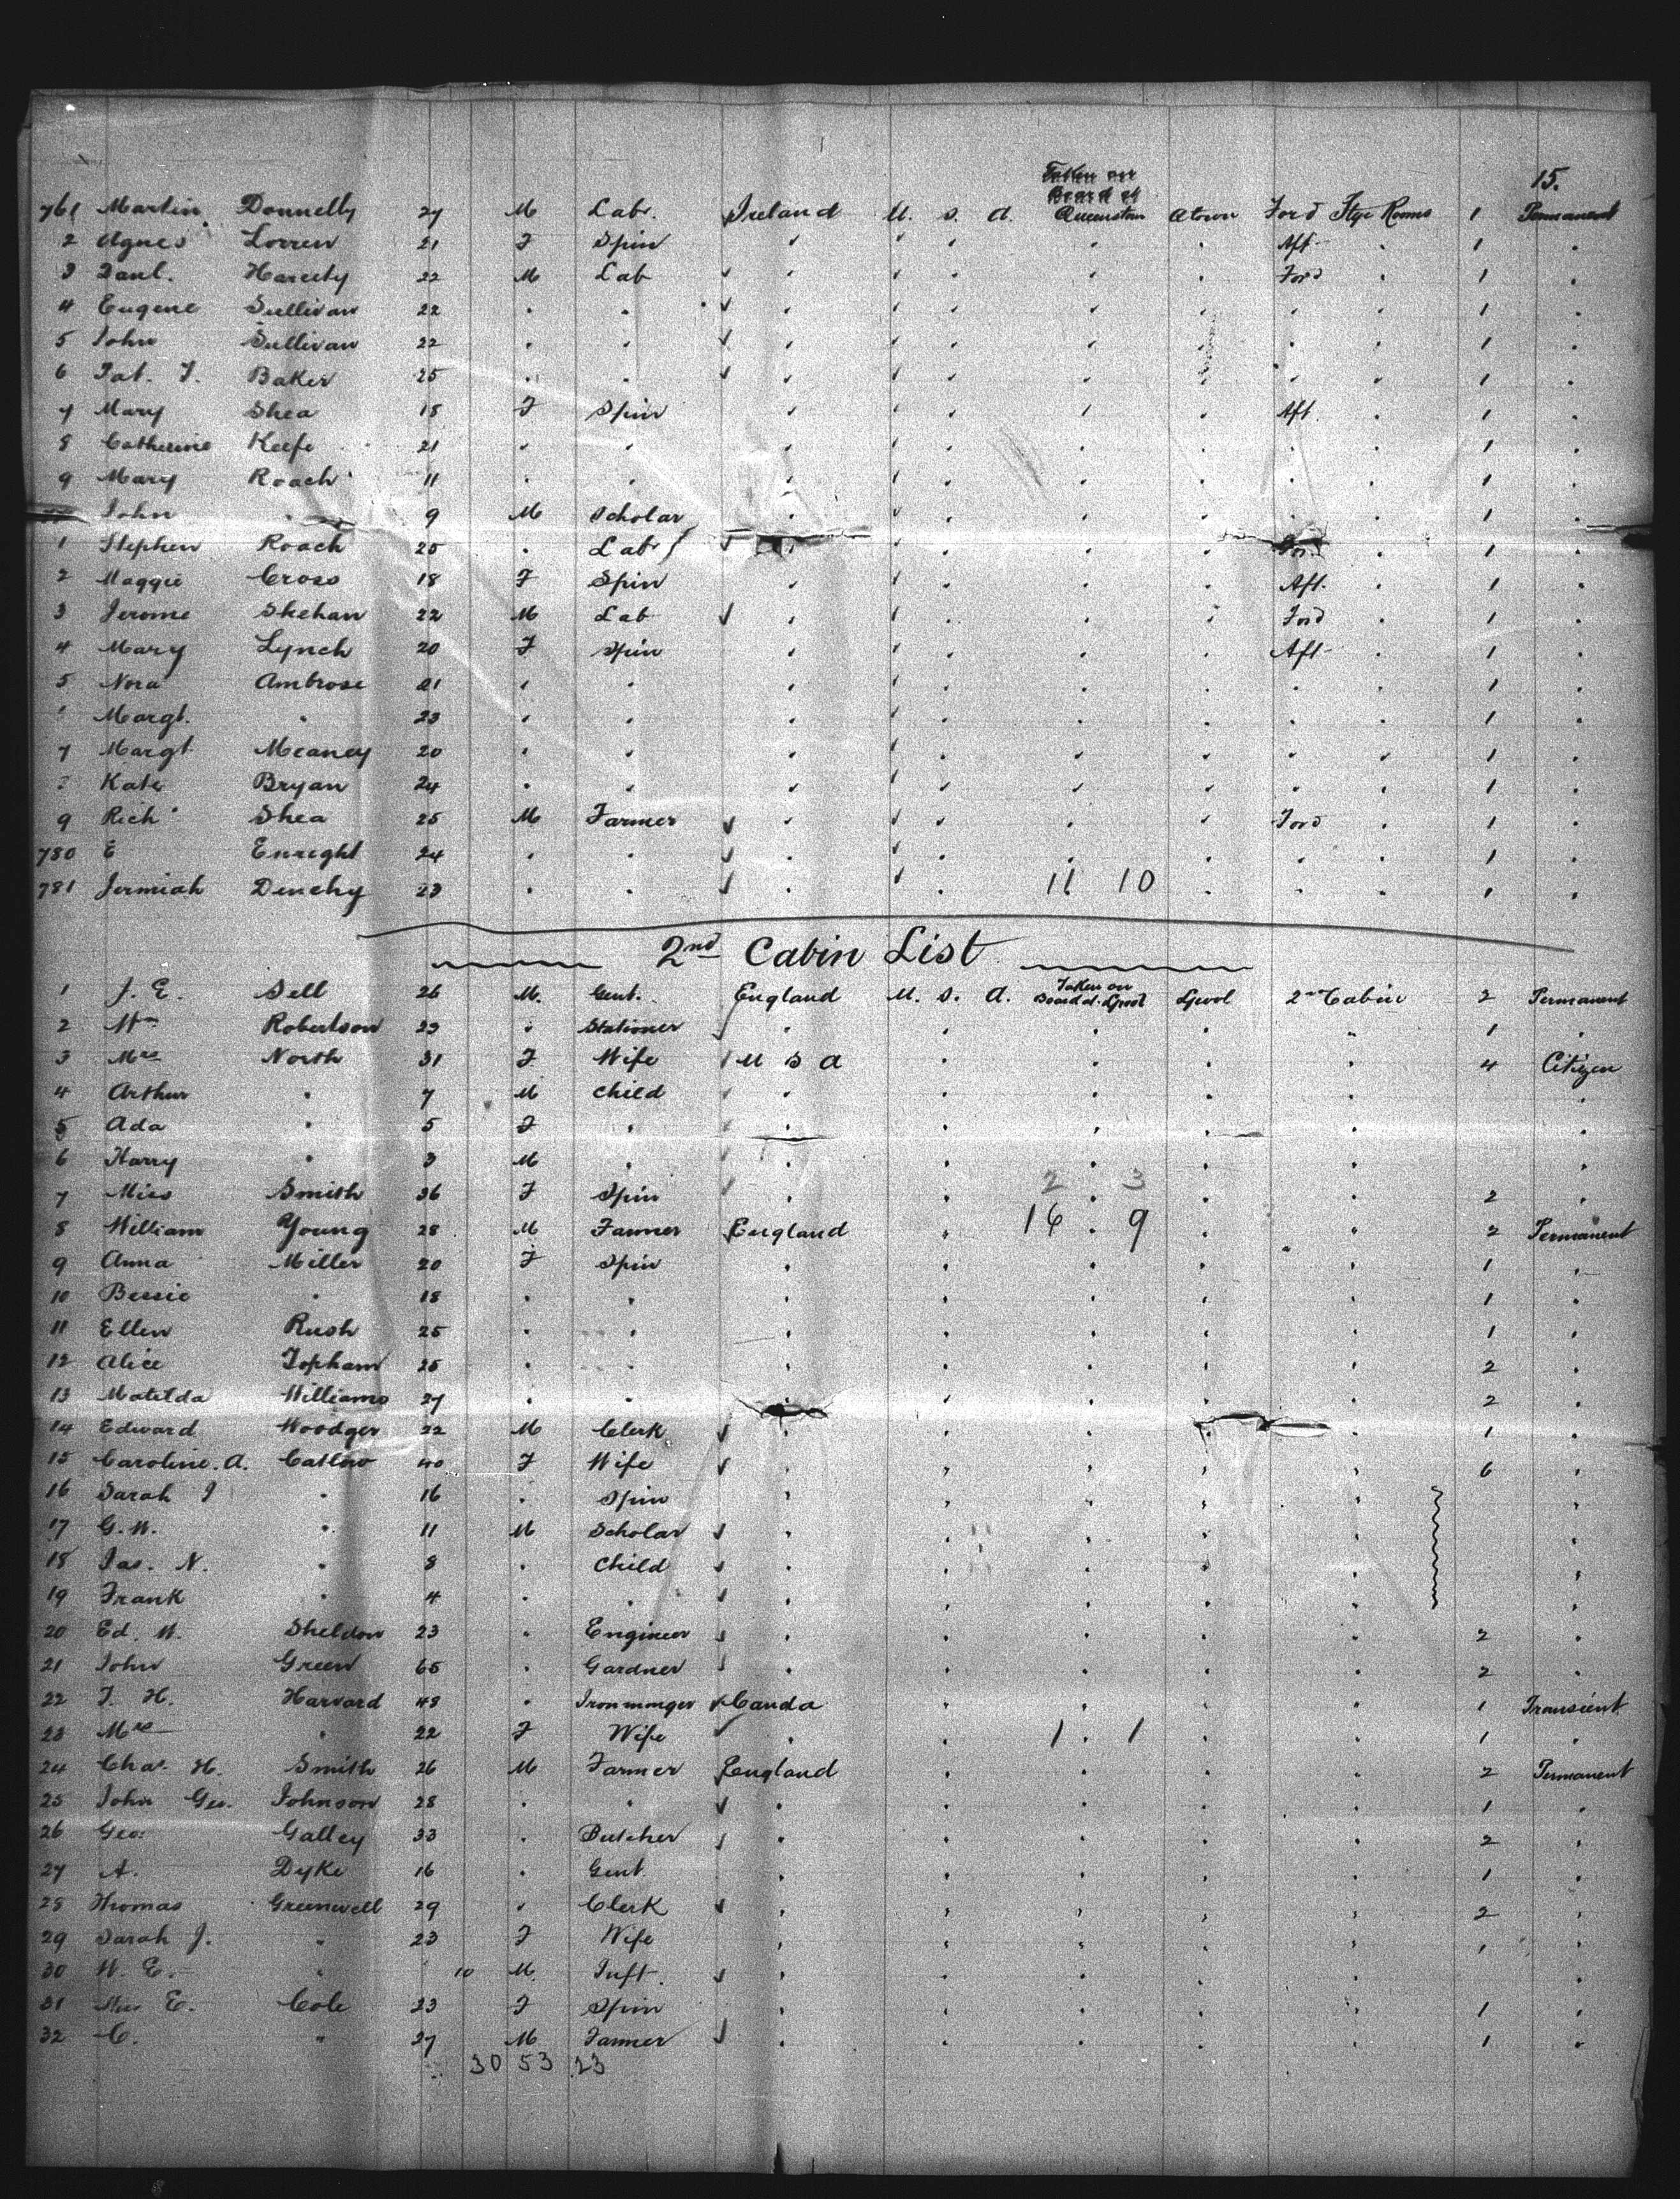 Taken on 15.
Board at
761 Martin Donnelly 27 M Lab. Ireland U. S. A. Queenstn Qtown Ford Stge Rooms 1 Permanent
2 Agnes Lorren 21 F Spin " " " " " " Aft " 1 "
3 Danl. Harcity 22 M Lab " " " " " " Ford " 1 "
4 Eugene Sullivan 22 " " " " " " " " " " 1 "
5 John Sullivan 22 " " " " " " " " " " 1 "
6 Pat. J. Baker 25 " " " " " " " " " " 1 "
7 Mary Shea 18 F Spin " " " " " Aft. " 1 "
8 Catherine Keefe 21 " " " " " " " " " 1 "
9 Mary Roach 11 " " " " " " " " " 1 "
John " 9 M Scholar " " " " " " " 1 "
1 Stephen Roach 25 " Lab " " " " " " 1 "
2 Maggie Cross 18 F Spin " " " " " Aft. " 1 "
3 Jerome Skehan 22 M Lab " " " " " Ford " 1 "
4 Mary Lynch 20 F Spin " " " " " Aft " 1 "
5 Nora Ambrose 21 " " " " " " " " " 1 "
Margt. " 23 " " " " " " " " " 1 "
7 Margt Meaney 20 " " " " " " " " " 1 "
Kate Bryan 24 " " " " " " " " " 1 "
9 Rich Shea 25 M Farmer " " " " " Ford " 1 "
780 E Enright 24 " " " " " " " " " 1 "
781 Jermiah Denehy 23 " " " " " 11 10 " " " 1 "
2nd Cabin List
1 J. E. Sell 26 M. Gent. England U. S. A. Taken on Board at Lpool Lpool 2nd Cabin 2 Permanent
2 Wm Robertson 23 " Stationer " " " " " 1 "
3 Mrs North 31 F Wife U S A " " " " 4 Citizen
4 Arthur " 7 M Child " " " " " "
5 Ada " 5 F " " " " " " "
6 Harry " 3 M " " " " " " "
7 Miss Smith 36 F Spin " " 2 " 3 " " 2 "
8 William Young 28 M Farmer England " 16 " 9 " " 2 Permanent
9 Anna Miller 20 F Spin " " " " " 1 "
10 Bessie " 18 " " " " " " " 1 "
11 Ellen Rush 25 " " " " " " " 1 "
12 Alice Topham 25 " " " " " " " 2 "
13 Matilda Williams 27 " " " " " " " 2 "
14 Edward Woodger 22 M Clerk " " " " " 1 "
15 Caroline. A. Catlow 40 F Wife " " " " " 6 "
16 Sarah J " 16 " Spin " " " " " "
17 G. W. " 11 M Scholar " " " " " "
18 Jas. N. " 8 " Child " " " " " "
19 Frank " 4 " " " " " " " "
20 Ed. W. Sheldon 23 " Engineer " " " " " 2 "
21 John Green 65 " Gardner " " " " " 2 "
22 J. H. Harvard 48 " Ironmunger Canda " " " " 1 Transient
23 Mrs " 22 F Wife " " 1 " 1 " " 1 "
24 Chas. H. Smith 26 M Farmer England " " " " 2 Permanent
25 John Geo. Johnson 28 " " " " " " " 1 "
26 Geo. Galley 33 " Butcher " " " " " 2 "
27 A. Dyke 16 " Gent. " " " " " 1 "
28 Thomas Greenwell 29 " Clerk " " " " " 2 "
29 Sarah J. " 23 F Wife " " " " " 1 "
30 W. E. " 10 M. Inft. " " " " " "
31 Miss E. Cole 23 F Spin " " " " " 1 "
32 C. " 27 M Farmer " " " " " 1 "
30 53 23